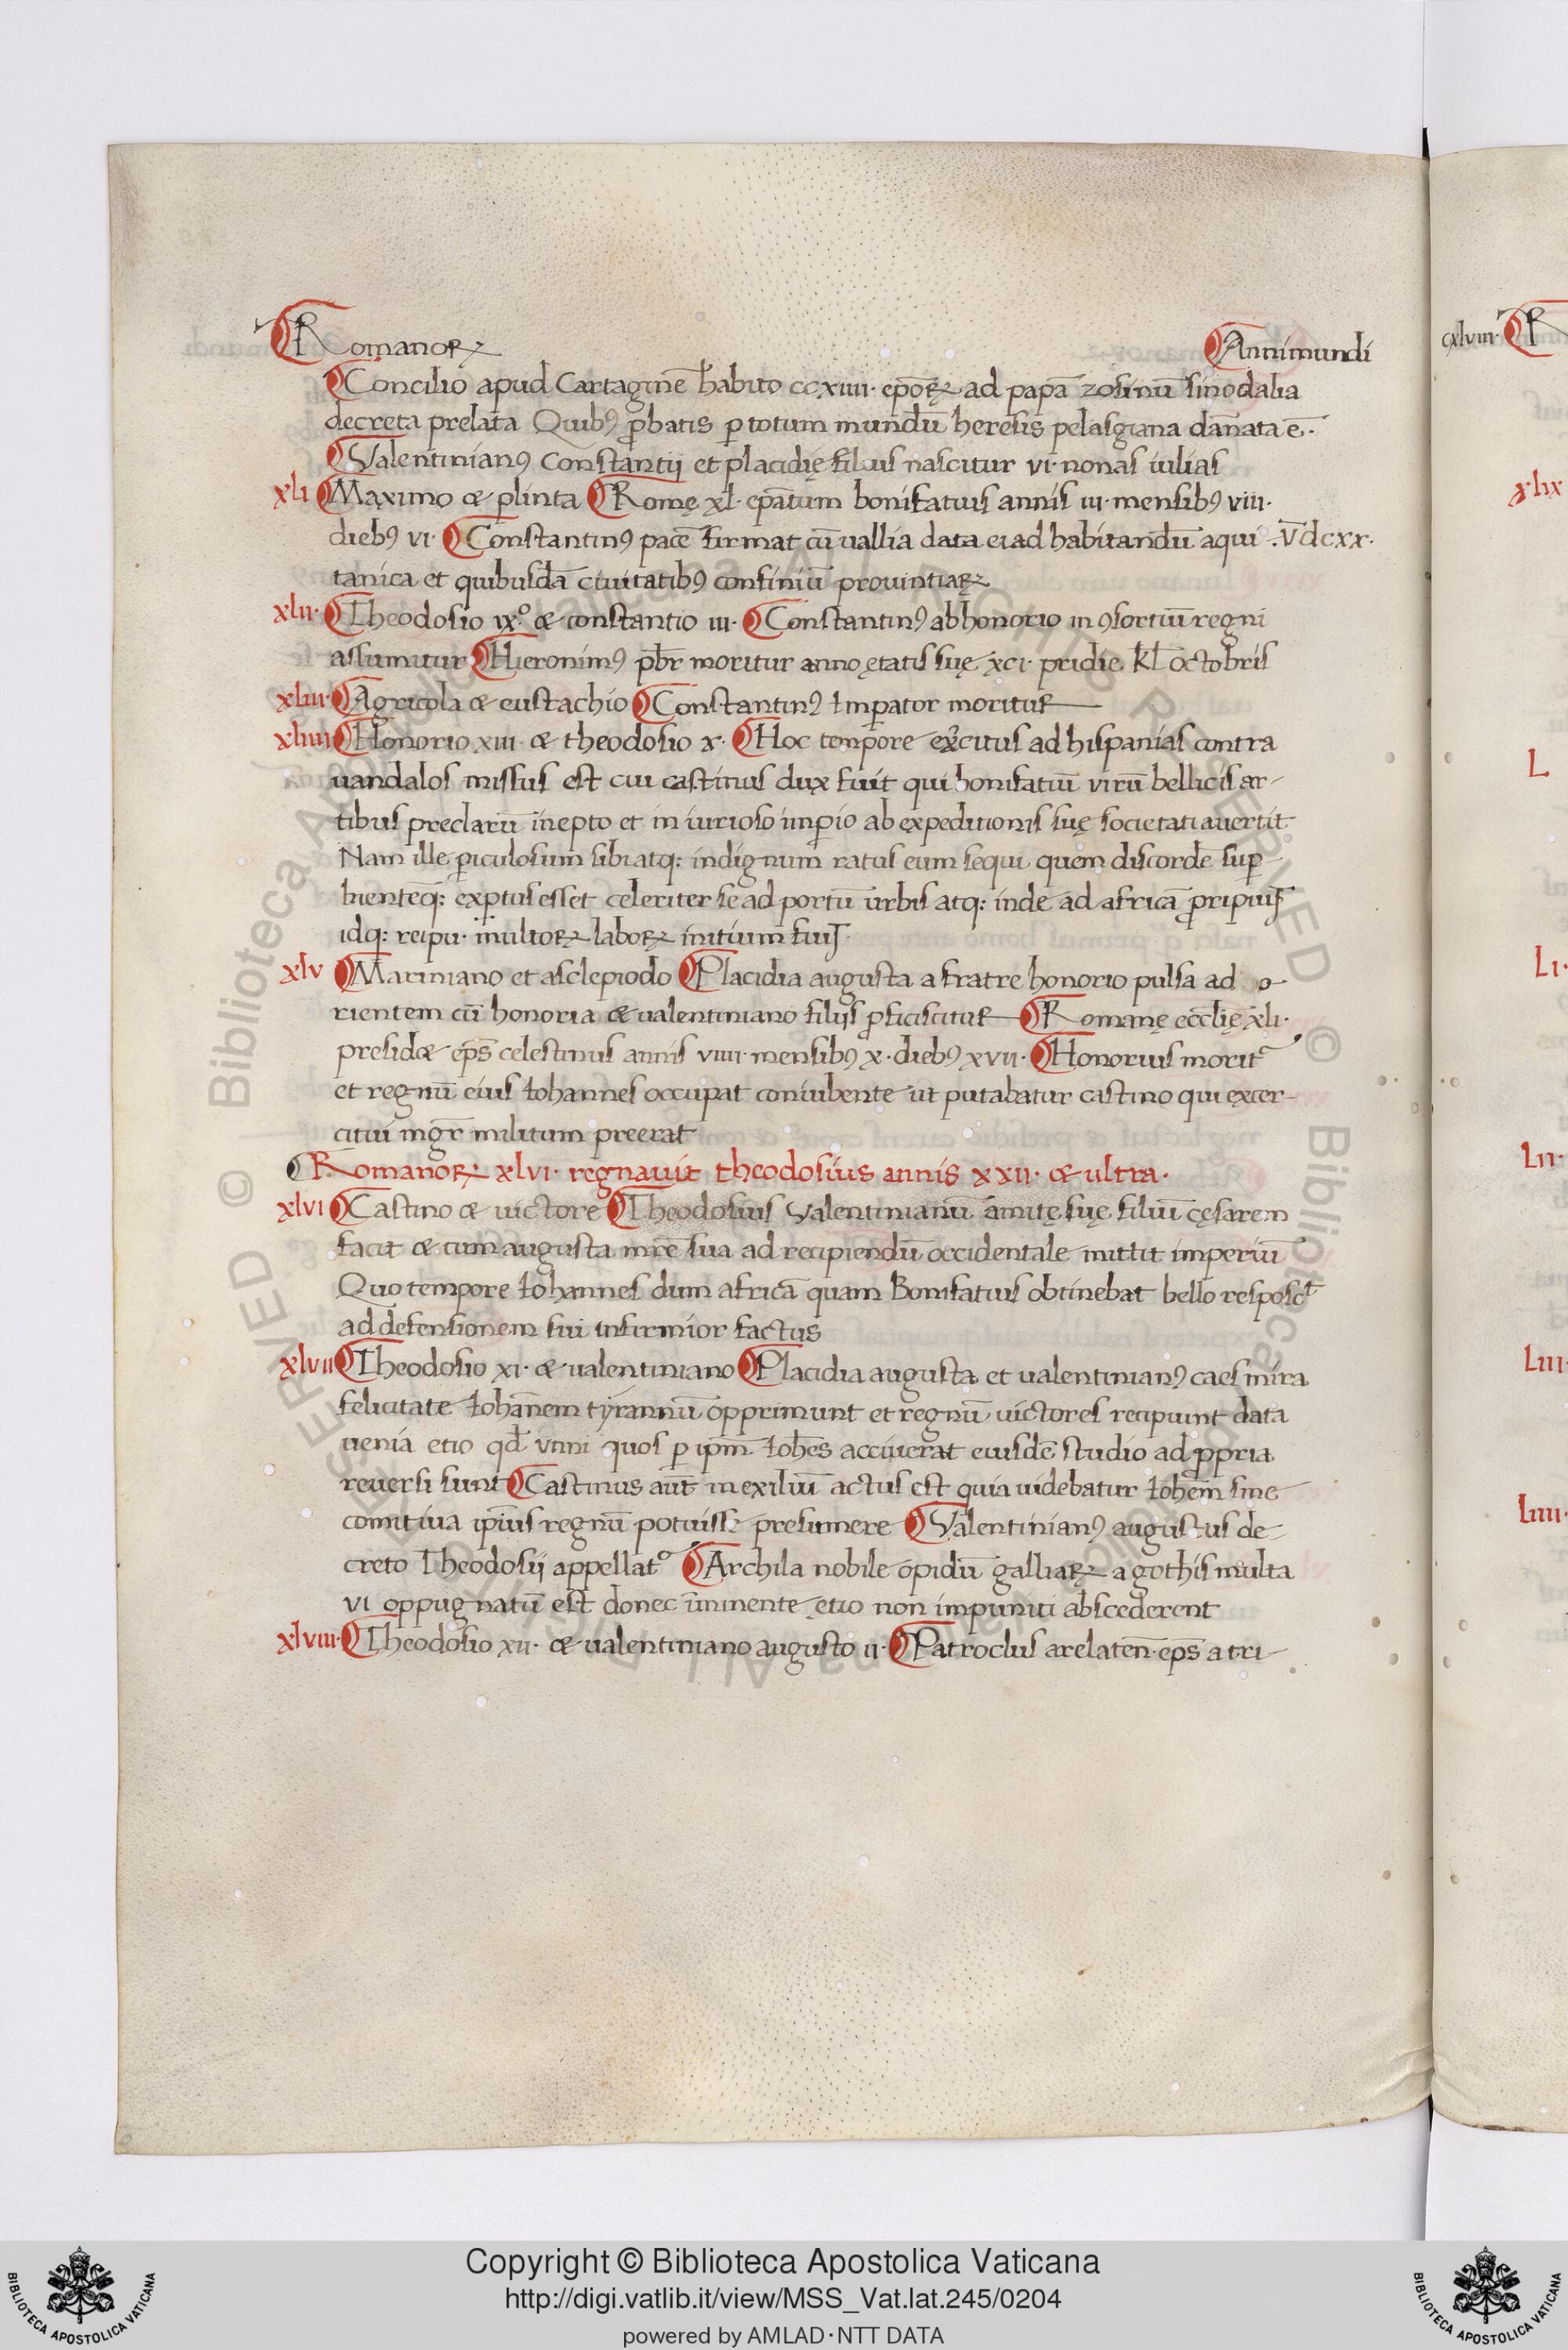 Romanoꝝ Anni mundi
Concilio apud Cartaginē habito ccxiiii· epōꝝ ad papā zosimū sinodalia
decreta prelata Quibꝰ ꝓbatis ꝑ totum mundū heresis pelasgiana dānata ē·
Valentinianꝰ Constantij et placidię filius nascitur vi· nonas iulias
xli Maximo & plinta Romę xl· epātum bonifatius annis iii· mensibꝰ viii·
diebꝰ vi· Constantinꝰ pacē firmat cū uallia data ei ad habitandū aqui ·v̄dcxx·
tanica et quibusdā ciuitatibꝰ confiniū prouintiaꝝ
xlii· Theodosio ix°· & constantio iii· Constantinꝰ ab honorio in ꝯsortiū regni
assumitur Hieronimꝰ pb̄r moritur anno ętatis suę xci· pridie kl̄ octobris
xliii· Agricola & eustachio Constantinꝰ Imꝑator moritur
xliiii Honorio xiii· & theodosio x· Hoc tempore exercitus ad hispanias contra
uandalos missus est cui castinus dux fuit qui bonifatiū virū bellicis ar-
tibus preclarū inepto et iniurioso imꝑio ab expeditionis suę societati avertit
Nam ille ꝑiculosum sibi atq: indignum ratus eum sequi quem discordē suꝑ-
bienteq̄: exꝑtus esset celeriter se ad portū urbis atq: inde ad africā ꝓripuit
idq: reipu· multoꝝ laboꝝ initium fuit·
xlv Mariniano et asclepiodo Placidia augusta a fratre honorio pulsa ad o-
rientem cū honoria & ualentiniano filijs ꝓficiscitur Romanę eccl̄ię xli·
presid& ep̄s celestinus annis viiii· mensibꝰ x· diebꝰ xvii· Honorius morit᷑
et regnū eius Iohannes occupat coniubente ut putabatur castino qui exer-
citui mgr̄ militum preerat
Romanoꝝ xlvi· regnavit theodosius annis xxii· & ultra·
xlvi Castino & uictore Theodosius Valentinianū amitę suę filiū cęsarem
facit & cum augusta mr̄e sua ad recipiendū occidentale mittit imperiū
Quo tempore Iohannes dum africā quam Bonifatius obtinebat bello resposc̄t
ad defensionem sui infirmior factus
xlvii Theodosio xi· & ualentiniano Placidia augusta et ualentinianꝰ caes mira
felicitate Iohānem tyrannū opprimunt et regnū uictores recipiunt data
uenia etio qd̄ vnni quos ꝑ ipm̄ Ioh̄es acciuerat eiusdē studio ad ꝓpria
reuersi sunt Castinus aūt in exiliū actus est quia uidebatur Iohem̄ sine
comitiua ip̄ius regnū potuisse presumere Valentinianꝰ augustus de-
creto Theodosij appellat᷑ Archila nobile opidū galliaꝝ a gothis multa
vi oppugnatū est donec īminente ętio non impuniti abscederent
xlviii· Theodosio xii· & ualentiniano augusto ii· Patroclus arelaten̄· ep̄s a tri-
cxlviii· R
xlix
L
Li·
Lii·
Liii
Liiii·
Copyright © Biblioteca Apostolica Vaticana
http://digi.vatlib.it/view/MSS_Vat.lat.245/0204
powered by AMLAD·NTT DATA
BIBLIOTECA APOSTOLICA VATICANA
BIBLIOTECA APOSTOLICA VATICANA